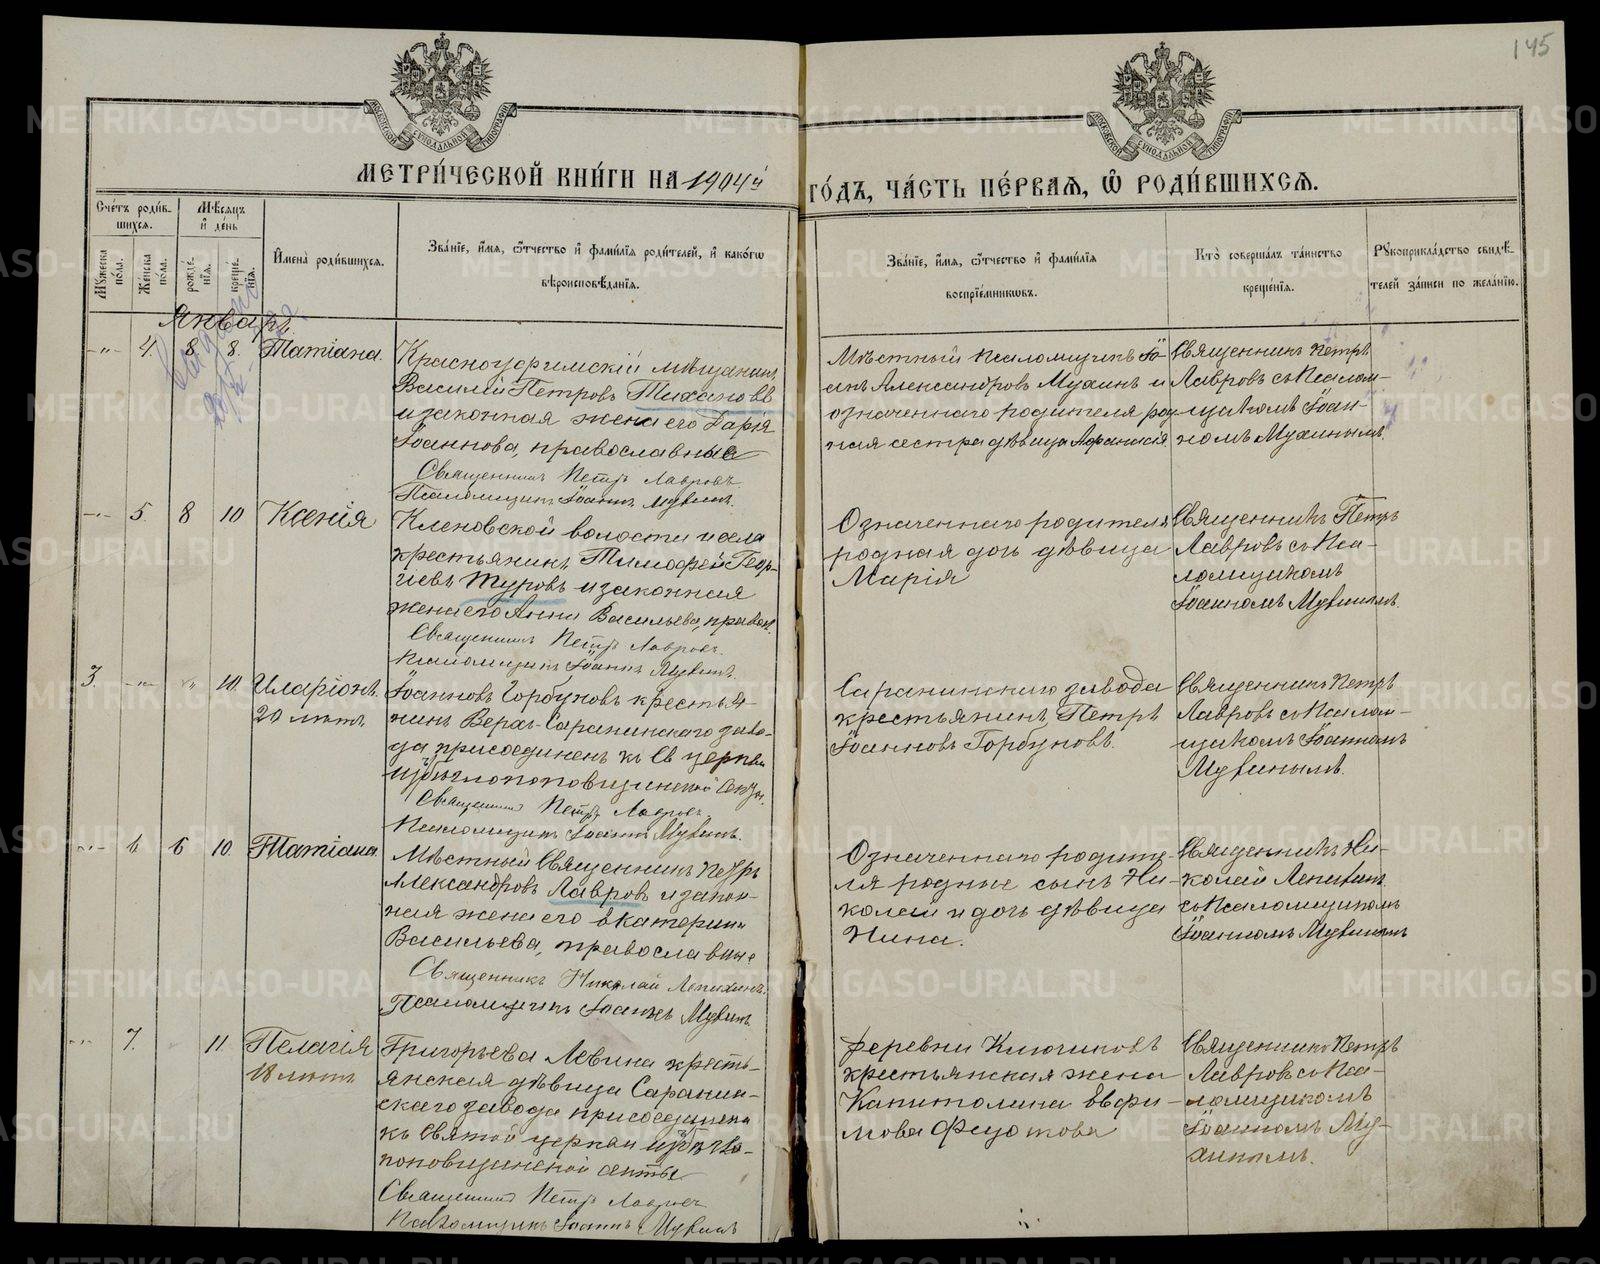 145
МОСКОВСКОЙ СУНОДАЛЬНОЙ ТИПОГРАФІИ
МОСКОВСКОЙ СУНОДАЛЬНОЙ ТИПОГРАФІИ
МЕТРИ́ЧЕСКОЙ КНИ́ГИ НА 1904й
ГО́ДЪ, ЧА́СТЬ ПЕ́РВАЯ, Ѡ РОДИ́ВШИХСЯ.
Сче́тъ роди́вшихся.
Му́жеска по́ла.
Же́нска по́ла.
Мѣ́сяцъ и де́нь
рожде́нїя.
креще́нїя.
И҆мена̀ роди́вшихся.
Зва́нїе, и҆́мя, ѻ҆́тчество и҆ фами́лїя роди́телей, и҆ како́гѡ
вѣроисповѣ́данїя.
Зва́нїе, и҆́мя, ѻ҆́тчество и҆ фами́лїя
воспрїе́мникѡвъ.
Кто̀ соверша́лъ та́инство
креще́нїя.
Рꙋкоприкла́дство свидѣ́телей за́писи по жела́нїю.
Январь.
-"- 4. 8. 8. Татіана.
Красноуфимскій мѣщанинъ
Василій Петровъ Тихановъ
и законная жена его Дарія
Іоаннова, православные
Священникъ Петръ Лавровъ
Псаломщикъ Іоаннъ Мухинъ.
Мѣстный псаломщикъ Іо-
аннъ Александровъ Мухинъ и
означеннаго родителя род-
ная сестра дѣвица Афанасія.
Священникъ Петръ
Лавровъ съ Псалом-
щикомъ Іоан-
номъ Мухинымъ.
-"- 5. 8 10 Ксенія
Кленовской волости и села
крестьянинъ Тимофей Геор-
гіевъ Туровъ и законная
жена его Анна Васильева, правосл.
Священникъ Петръ Лавровъ.
Псаломщикъ Іоаннъ Мухинъ.
Означеннаго родителя
родная дочь дѣвица
Марія
Священникъ Петръ
Лавровъ съ Пса-
ломщикомъ
Іоанномъ Мухинымъ.
3. -"- -"- 10. Иларіонъ.
20 лѣтъ.
Іоанновъ Горбуновъ крестья-
нинъ Верхъ-Саранинскаго заво-
да присоединенъ къ Св церкви
изъ бѣглопоповщинской секты.
Священникъ Петръ Лавровъ
Псаломщикъ Іоаннъ Мухинъ.
Саранинскаго завода
крестьянинъ Петръ
Іоанновъ Горбуновъ.
Священникъ Петръ
Лавровъ съ Псалом-
щикомъ Іоанномъ
Мухинымъ.
-"- 6. 6 10. Татіана.
Мѣстный Священникъ Петръ
Александровъ Лавровъ и закон-
ная жена его Екатерина
Васильева, православные
Священникъ Николай Лепихинъ.
Псаломщикъ Іоаннъ Мухинъ.
Означеннаго родите-
ля родные сынъ Ни-
колай и дочь дѣвица
Нина.
Священникъ Ни-
колай Лепихинъ
съ Псаломщикомъ
Іоанномъ Мухинымъ
-"- 7. 11. Пелагія
18 лѣтъ
Григорьева Левина кресть-
янская дѣвица Саранин-
скаго завода присоединена
къ Святой церкви изъ бѣгло-
поповщинской секты
Священникъ Петръ Лавровъ
Псаломщикъ Іоаннъ Мухинъ
Деревни Ключиковъ
крестьянская жена
Капитолина Евфи-
мова Федотова
Священникъ Петръ
Лавровъ съ Пса-
ломщикомъ
Іоанномъ Му-
хинымъ.
METRIKI.GASO-URAL.RU